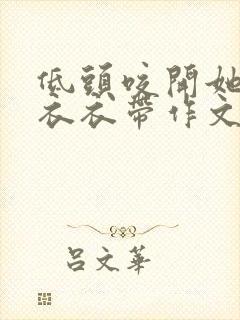 低頭咬開她
衣衣帶作文
呂文華